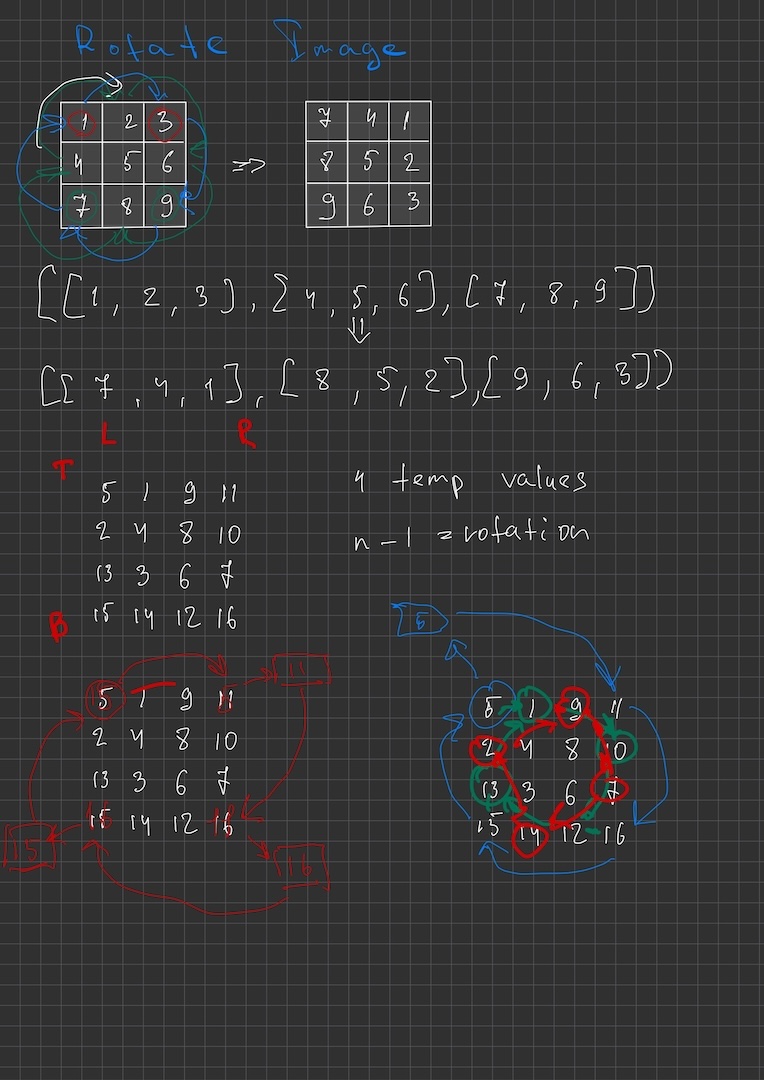 Rotate Image
1 2 3
4 5 6
7 8 9
=>
7 4 1
8 5 2
9 6 3
[[1, 2, 3], [4, 5, 6], [7, 8, 9]]
⇓
[[7, 4, 1], [8, 5, 2], [9, 6, 3]]
L R
T
5 1 9 11
2 4 8 10
13 3 6 7
15 14 12 16
B
4 temp values
n-1 = rotation
5 1 9 11
2 4 8 10
13 3 6 7
15 14 12 16
11
15
16
5
5 1 9 11
2 4 8 10
13 3 6 7
15 14 12 16